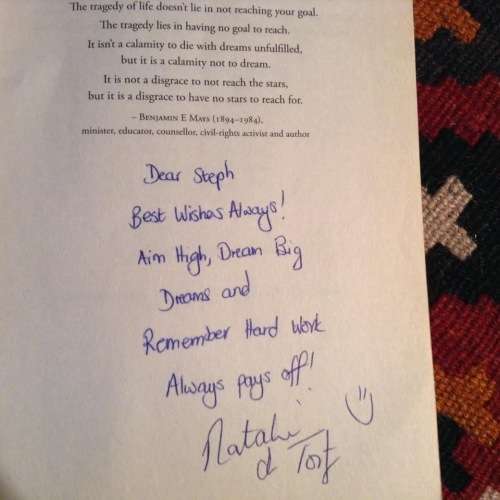 The tragedy of life doesn't lie in not reaching your goal.
The tragedy lies in having no goal to reach.
It isn't a calamity to die with dreams unfulfilled,
but it is a calamity not to dream.
It is not a disgrace to not reach the stars,
but it is a disgrace to have no stars to reach for.
– Benjamin E Mays (1894–1984),
minister, educator, counsellor, civil-rights activist and author
Dear Steph
Best Wishes Always!
Aim High, Dream Big
Dreams and
Remember Hard Work
Always pays off!
Natalie
d Toit